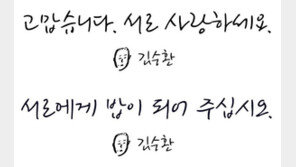 고맙습니다. 서로 사랑하세요.
김수환
서로에게 밥이 되어 주십시오.
김수환